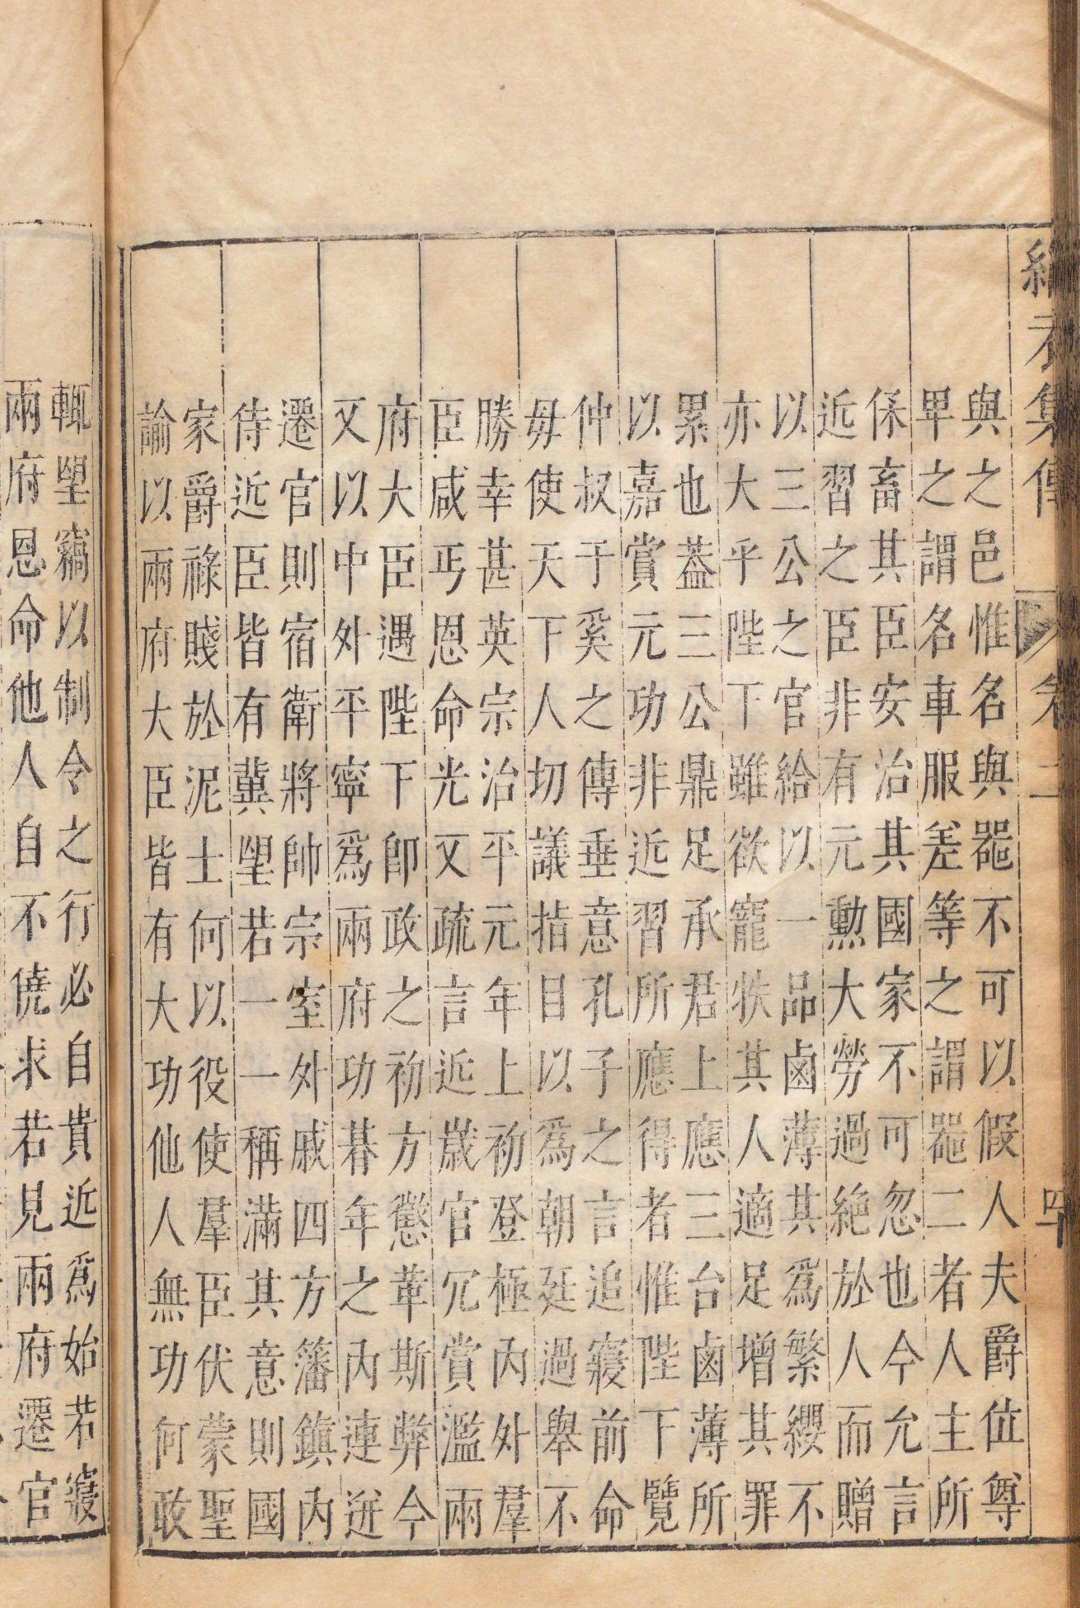 集傳 卷二
與之邑惟名與器不可以假人夫爵位尊
卑之謂名車服差等之謂器二者人主所
保畜其臣安治其國家不可忽也今允言
近習之臣非有元勳大勞過絶於人而贈
以三公之官給以一品鹵薄其爲繁纓不
亦大乎陛下雖欲寵秩其人適足增其罪
累也葢三公鼎足承君上應三台鹵薄所
以嘉賞元功非近習所應得者惟陛下覽
仲叔于奚之傳垂意孔子之言追寢前命
毋使天下人切議指目以爲朝廷過舉不
勝幸甚英宗治平元年上初登極內外羣
臣咸丐恩命光又疏言近嵗官冗賞濫兩
府大臣遇陛下卽政之初方懲革斯弊今
又以中外平寧爲兩府功朞年之內連迸
遷官則宿衛將帥宗室外戚四方籓鎮內
侍近臣皆有冀望若一一稱滿其意則國
家爵祿賤於泥土何以役使羣臣伏蒙聖
諭以兩府大臣皆有大功他人無功何敢
輒望竊以制令之行必自貴近爲始若寢
兩府恩命他人自不僥求若見兩府遷官